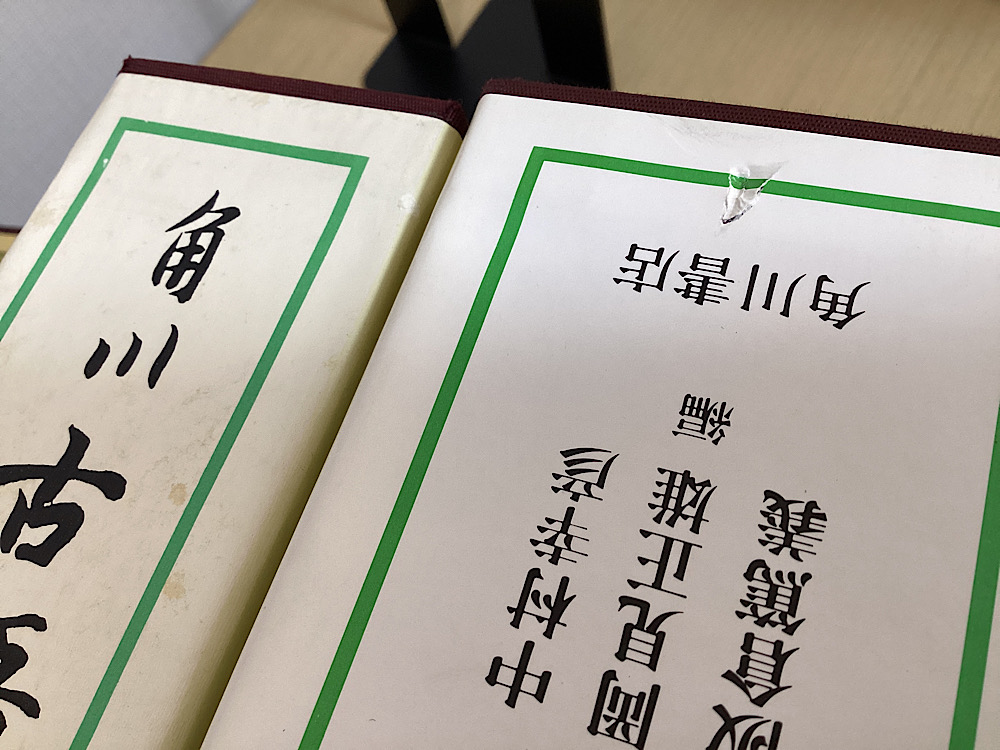 角川古
中村幸彦
岡見正雄 編
阪倉篤義
角川書店